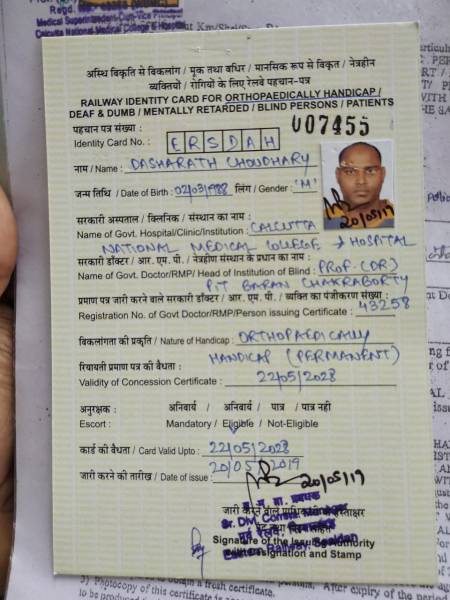 Medical Superintendent-Cum-Vice Principal
Calcutta National Medical College & Hospital
अस्थि विकृति से विकलांग / मूक तथा बधिर / मानसिक रूप से विकृत / नेत्रहीन
व्यक्तियों / रोगियों के लिए रेलवे पहचान-पत्र
RAILWAY IDENTITY CARD FOR ORTHOPAEDICALLY HANDICAP /
DEAF & DUMB / MENTALLY RETARDED / BLIND PERSONS / PATIENTS
पहचान पत्र संख्या :
007455
Identity Card No. : ERSDAH
नाम / Name : DASHARATH CHOUDHARY
जन्म तिथि / Date of Birth : 02/03/1988 लिंग / Gender : 'M'
20/05/19
सरकारी अस्पताल / क्लिनिक / संस्थान का नाम :
Name of Govt. Hospital/Clinic/Institution : CALCUTTA
NATIONAL MEDICAL COLLEGE & HOSPITAL
सरकारी डॉक्टर / आर. एम. पी. / नेत्रहीन संस्थान के प्रधान का नाम :
Name of Govt. Doctor/RMP/ Head of Institution of Blind : PROF. (DR)
BARAN CHAKRABORTY
प्रमाण पत्र जारी करने वाले सरकारी डॉक्टर / आर. एम. पी. / व्यक्ति का पंजीकरण संख्या :
Registration No. of Govt Doctor/RMP/Person issuing Certificate : 43258
विकलांगता की प्रकृति / Nature of Handicap : ORTHOPAEDICALLY
HANDICAP (PERMANENT)
रियायती प्रमाण पत्र की वैधता :
Validity of Concession Certificate : 22/05/2028
अनुरक्षक : अनिवार्य / अनिवार्य / पात्र / पात्र नही
Escort : Mandatory / Eligible / Not-Eligible
कार्ड की वैधता / Card Valid Upto : 22/05/2028
जारी करने की तारीख / Date of issue : 20/05/2019
20/05/19
जारी करने वाले प्राधिकारी के हस्ताक्षर
Sr. Divl. Comml. Manager
Signature of the Issuing Authority
Eastern Railway, Sealdah
with Designation and Stamp
a fresh certificate.
3) Photocopy of this certificate is After expiry of the period